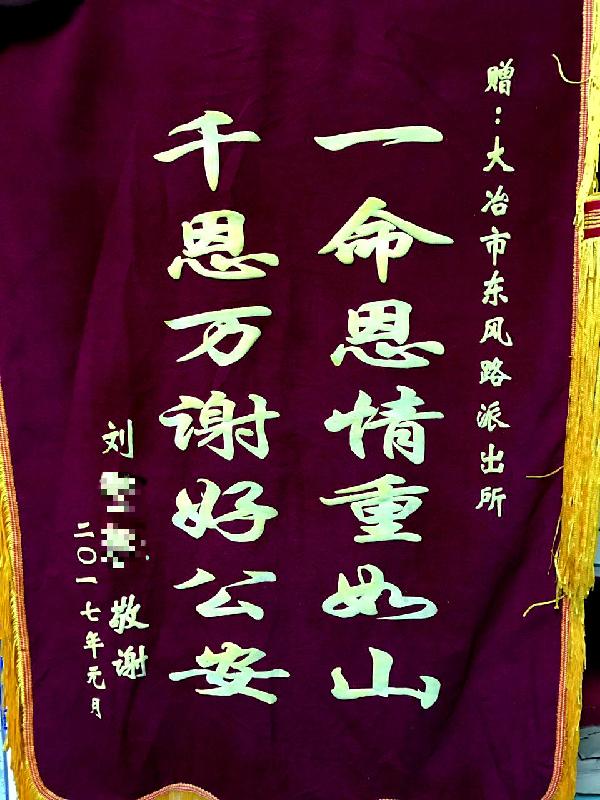 赠：大冶市东风路派出所
一命恩情重如山
千恩万谢好公安
刘 敬谢
二〇一七年元月